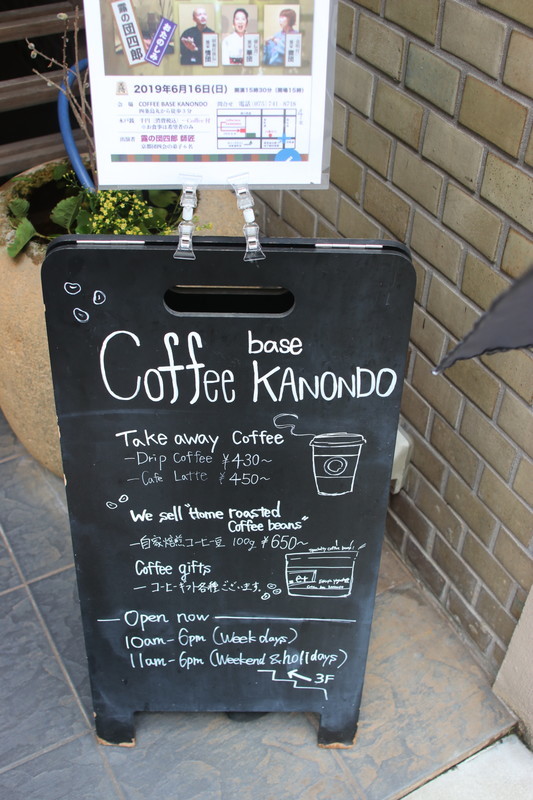 霧の団四郎
おたのしみ
2019年6月16日(日) 開演15時30分 (開場15時)
会 場 COFFEE BASE KANONDO
四条烏丸から徒歩5分
出演者 霧の団四郎 師匠
Coffee base KANONDO
Take away Coffee
- Drip Coffee ¥430~
- Cafe Latte ¥450~
We sell "Home roasted
Coffee beans"
- 自家焙煎コーヒー豆 100g ¥650~
Coffee gifts
- コーヒーギフト各種ございます。
Open now
10am - 6pm (Week days)
11am - 6pm (Weekend & holidays)
3F